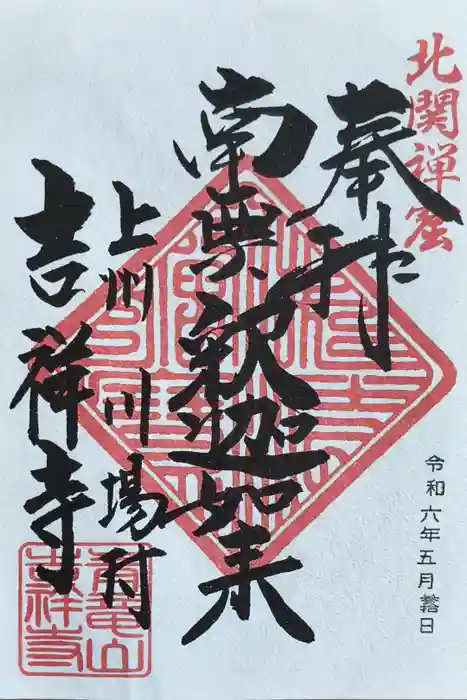 北関禅窟
奉拝
南無釈迦如来
上州川場村
吉祥寺
令和六年五月 日
青龍山
吉祥寺